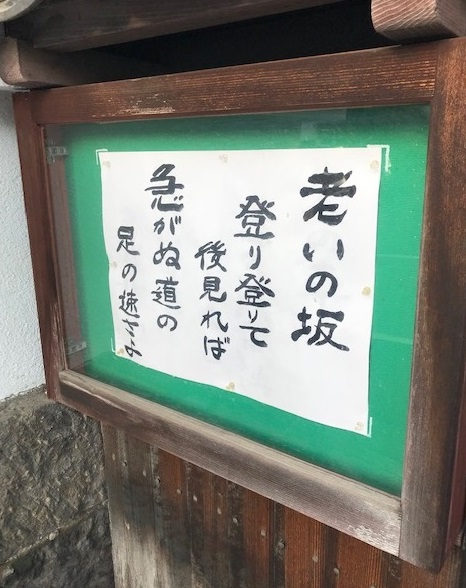 老いの坂
登り登りて
後見れば
急がぬ道の
足の速さよ